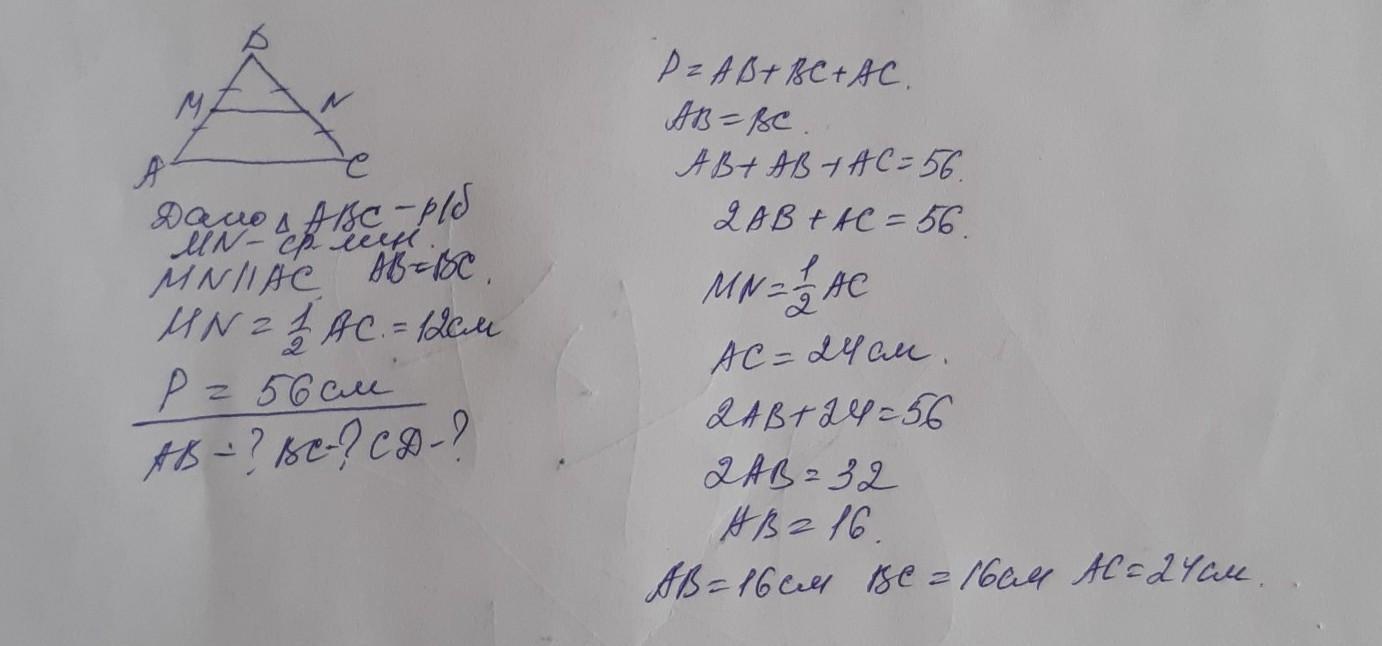 B
M N
A C
Дано △ ABC - р/б
MN - ср. лин.
MN || AC AB = BC.
MN = 1/2 AC. = 12 см
P = 56 см
AB - ? BC - ? CD - ?
P = AB + BC + AC.
AB = BC.
AB + AB + AC = 56.
2AB + AC = 56.
MN = 1/2 AC
AC = 24 см.
2AB + 24 = 56
2AB = 32
AB = 16.
AB = 16 см BC = 16 см AC = 24 см.